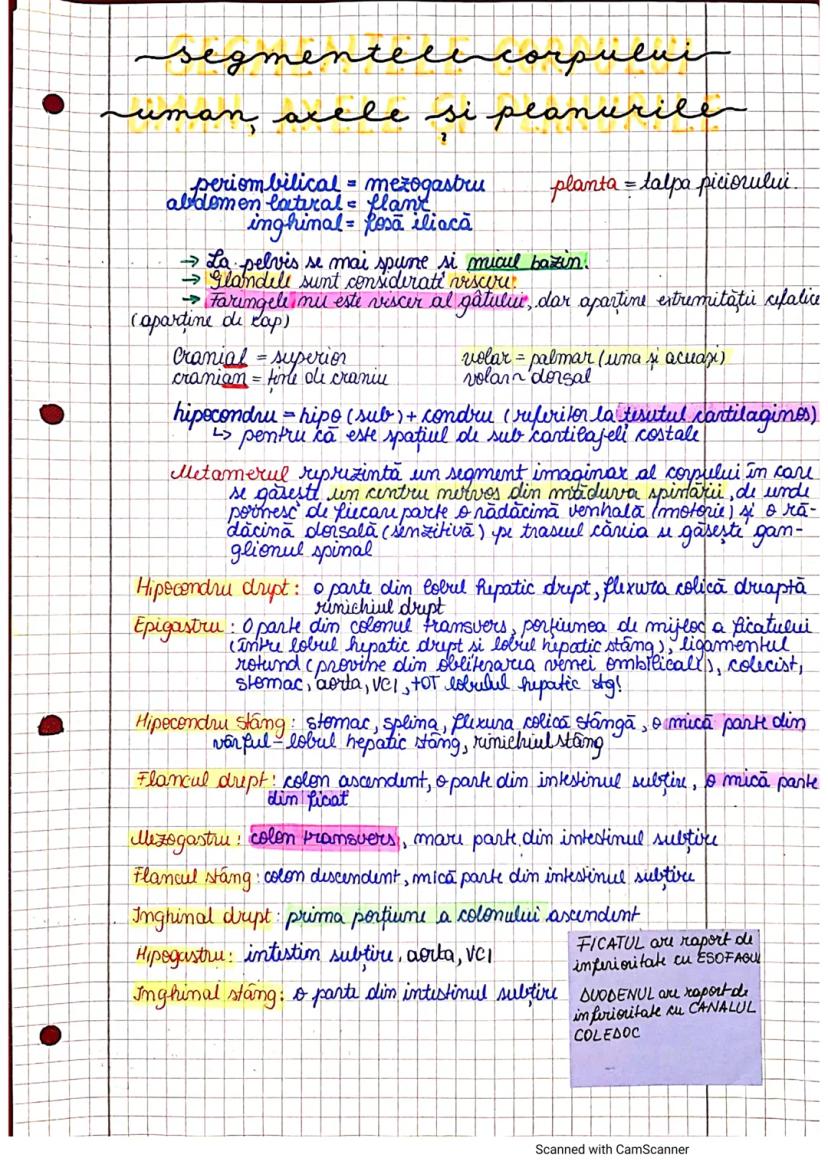 segmentele corpului
uman, axele și planurile
periombilical = mezogastru
planta = talpa piciorului.
abdomen lateral = flanc
inghinal = fosă iliacă
→ La pelvis se mai spune si micul bazin.
→ Glandele sunt considerate viscere.
→ Faringele nu este viscer al gâtului, dar aparține extremității cefalice
(aparține de cap)
Cranial = superior
volar = palmar (una și aceeași)
cranian = ține de craniu
volar ~ dorsal
hipocondru = hipo (sub) + condru (referitor la țesutul cartilaginos)
↳ pentru că este spațiul de sub cartilajele costale
Metamerul reprezintă un segment imaginar al corpului în care
se găsește un centru nervos din măduva spinării, de unde
pornesc de fiecare parte o rădăcină ventrală (motorie) și o ră-
dăcină dorsală (senzitivă) pe traseul căreia se găsește gan-
glionul spinal
Hipocondru drept: o parte din lobul hepatic drept, flexura colică dreaptă
rinichiul drept
Epigastru: O parte din colonul transvers, porțiunea de mijloc a ficatului
(între lobul hepatic drept si lobul hepatic stâng), ligamentul
rotund (provine din obliterarea venei ombilicale), colecist,
stomac, aorta, VCI, TOT lobulul hepatic stg!
Hipocondru stâng: stomac, splina, flexura colică stângă, o mică parte din
vârful - lobul hepatic stâng, rinichiul stâng
Flancul drept: colon ascendent, o parte din intestinul subțire, o mică parte
din ficat
Mezogastru: colon transvers, mare parte din intestinul subțire
Flancul stâng: colon descendent, mică parte din intestinul subțire
Inghinal drept: prima porțiune a colonului ascendent
Hipogastru: intestin subțire, aorta, VCI
Inghinal stâng: o parte din intestinul subțire
FICATUL are raport de
inferioritate cu ESOFAGUL
DUODENUL are raport de
inferioritate cu CANALUL
COLEDOC
Scanned with CamScanner